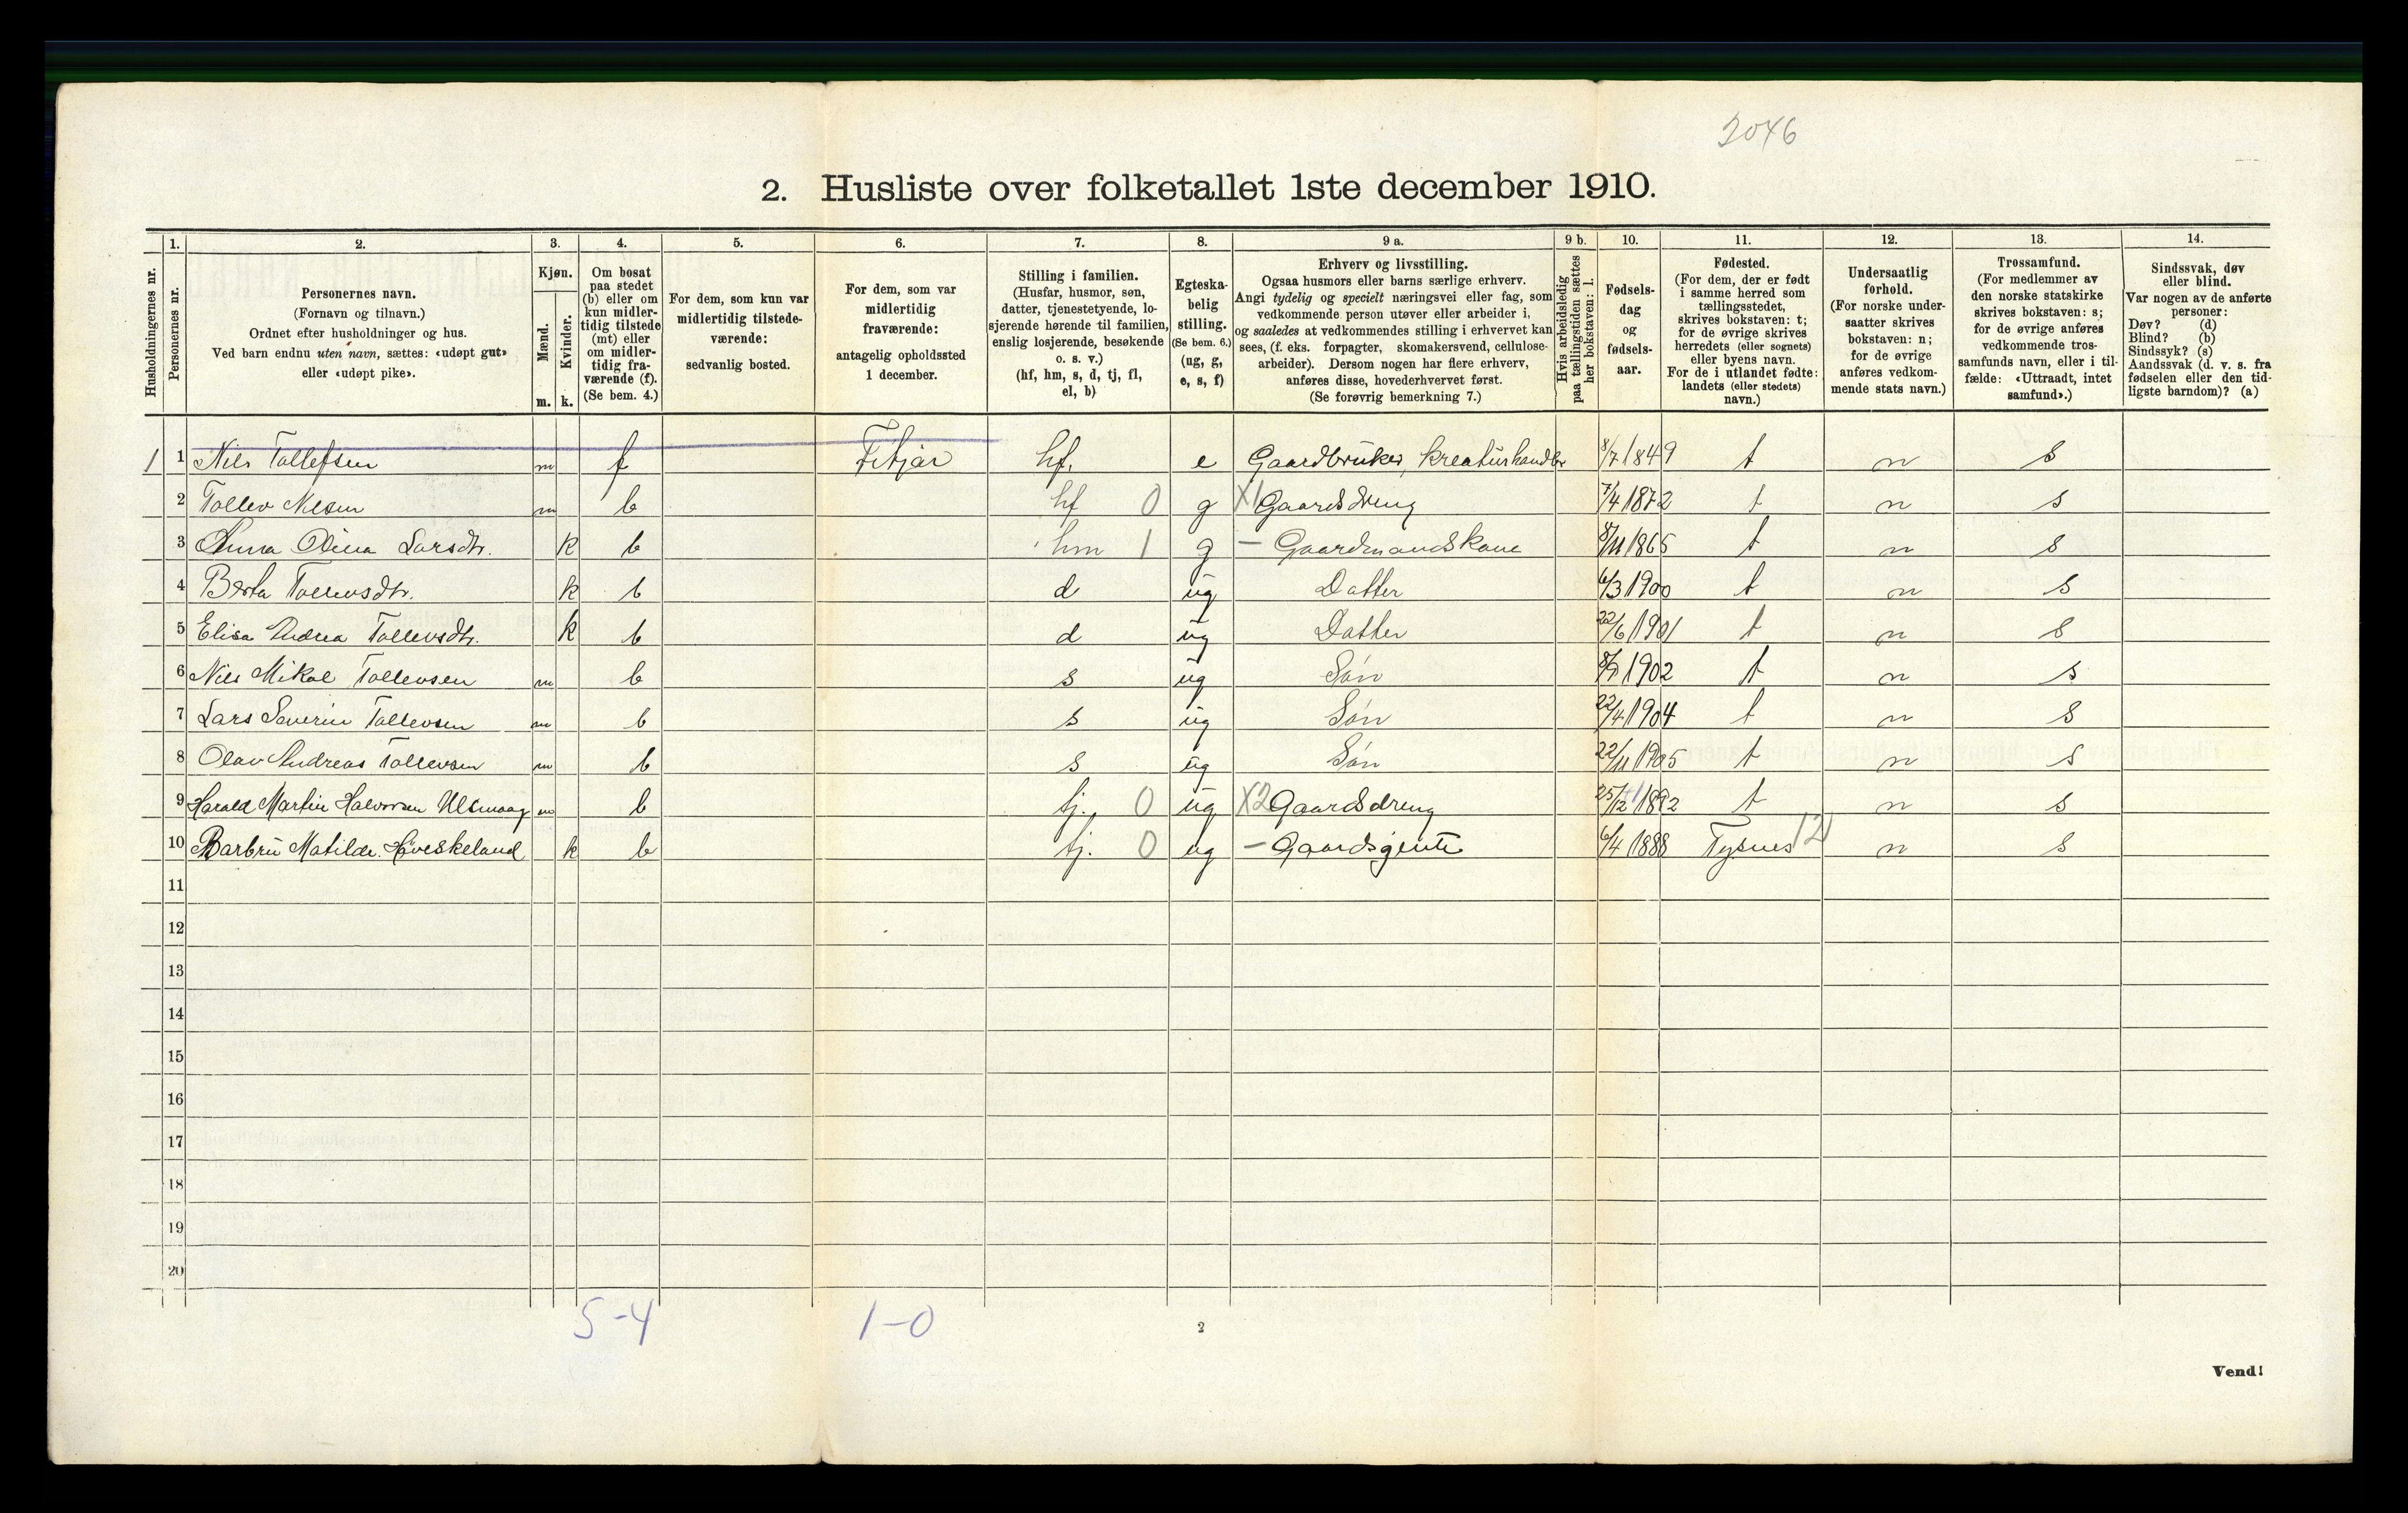 2046
2. Husliste over folketallet 1ste december 1910.
Husholdningernes nr.
1. Personernes nr.
2. Personernes navn. (Fornavn og tilnavn.) Ordnet efter husholdninger og hus. Ved barn endnu uten navn, sættes: «udøpt gut» eller «udøpt pike».
3. Kjøn. Mænd. m. Kvinder. k.
4. Om bosat paa stedet (b) eller om kun midlertidig tilstede (mt) eller om midlertidig fraværende (f). (Se bem. 4.)
5. For dem, som kun var midlertidig tilstedeværende: sedvanlig bosted.
6. For dem, som var midlertidig fraværende: antagelig opholdssted 1 december.
7. Stilling i familien. (Husfar, husmor, søn, datter, tjenestetyende, losjerende hørende til familien, enslig losjerende, besøkende o. s. v.) (hf, hm, s, d, tj, fl, el, b)
8. Egteskabelig stilling. (Se bem. 6.) (ug, g, e, s, f)
9 a. Erhverv og livsstilling. Ogsaa husmors eller barns særlige erhverv. Angi tydelig og specielt næringsvei eller fag, som vedkommende person utøver eller arbeider i, og saaledes at vedkommendes stilling i erhvervet kan sees, (f. eks. forpagter, skomakersvend, cellulosearbeider). Dersom nogen har flere erhverv, anføres disse, hovederhvervet først. (Se forøvrig bemerkning 7.)
9 b. Hvis arbeidsledig paa tællingstiden sættes her bokstaven: l.
10. Fødselsdag og fødselsaar.
11. Fødested. (For dem, der er født i samme herred som tællingsstedet, skrives bokstaven: t; for de øvrige skrives herredets (eller sognets) eller byens navn. For de i utlandet fødte: landets (eller stedets) navn.)
12. Undersaatlig forhold. (For norske undersaatter skrives bokstaven: n; for de øvrige anføres vedkommende stats navn.)
13. Trossamfund. (For medlemmer av den norske statskirke skrives bokstaven: s; for de øvrige anføres vedkommende trossamfunds navn, eller i tilfælde: «Uttraadt, intet samfund».)
14. Sindssvak, døv eller blind. Var nogen av de anførte personer: Døv? (d) Blind? (b) Sindssyk? (s) Aandssvak (d. v. s. fra fødselen eller den tidligste barndom)? (a)
1 1 Nils Tollefsen m f Fitjar hf. e Gaardbruker, kreaturhandler 8/7 1849 t n s
2 Tollev Nilsen m b hf 0 g X1 Gaardsdreng 7/4 1872 t n s
3 Anna Olina Larsdtr. k b hm 1 g – Gaardmandskone 8/11 1865 t n s
4 Berta Tollevsdtr. k b d ug Datter 6/3 1900 t n s
5 Elisa Andrea Tollevsdtr. k b d ug Datter 22/6 1901 t n s
6 Nils Mikal Tollevsen m b s ug Søn 8/7 1902 t n s
7 Lars Severin Tollevsen m b s ug Søn 22/4 1904 t n s
8 Olav Andreas Tollevsen m b s ug Søn 22/11 1905 t n s
9 Harald Martin Halvorsen Ulsmaag m b tj. 0 ug X2 Gaardsdreng 25/12 1892 t n s
10 Barbru Matilde Høveskeland k b tj. 0 ug – Gaardsgjente 6/4 1888 Tysnes 12 n s
11
12
13
14
15
16
17
18
19
20
5-4 1-0
2
Vend!